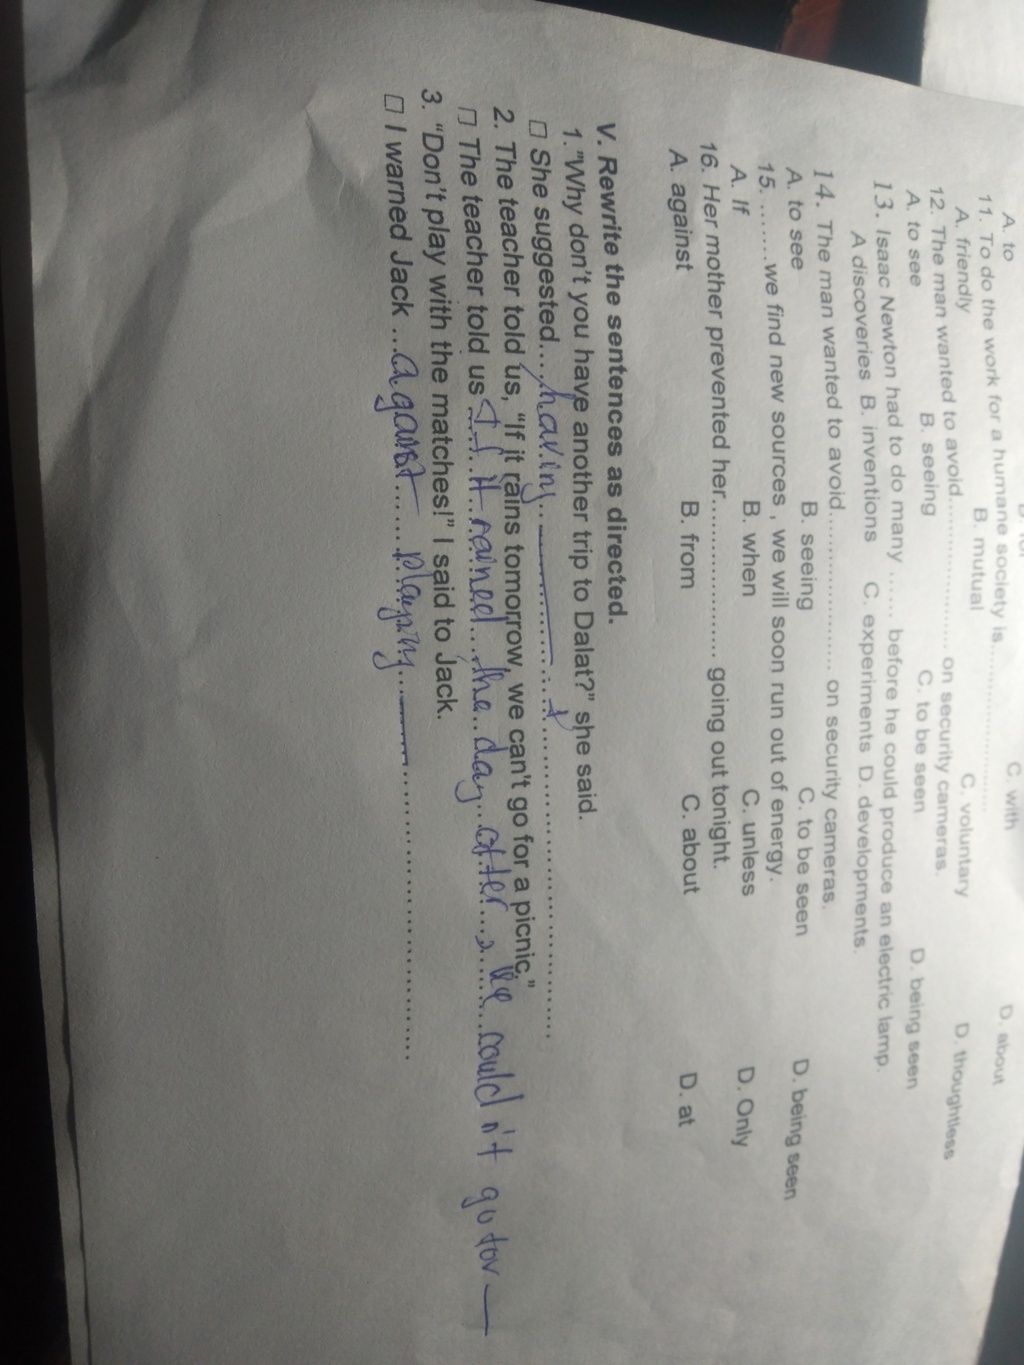 A. to C. with D. about
11. To do the work for a humane society is....................
A. friendly B. mutual C. voluntary D. thoughtless
12. The man wanted to avoid.................... on security cameras.
A. to see B. seeing C. to be seen D. being seen
13. Isaac Newton had to do many ...... before he could produce an electric lamp.
A discoveries B. inventions C. experiments D. developments.
14. The man wanted to avoid .................... on security cameras.
A. to see B. seeing C. to be seen D. being seen
15. ........we find new sources , we will soon run out of energy.
A. If B. when C. unless D. Only
16. Her mother prevented her.................... going out tonight.
A. against B. from C. about D. at
V. Rewrite the sentences as directed.
1."Why don't you have another trip to Dalat?" she said.
□ She suggested.... having
2. The teacher told us, "If it rains tomorrow, we can't go for a picnic."
□ The teacher told us If it rained the day after, we couldn't go for
3. "Don't play with the matches!" I said to Jack.
□ I warned Jack ... against ... playing